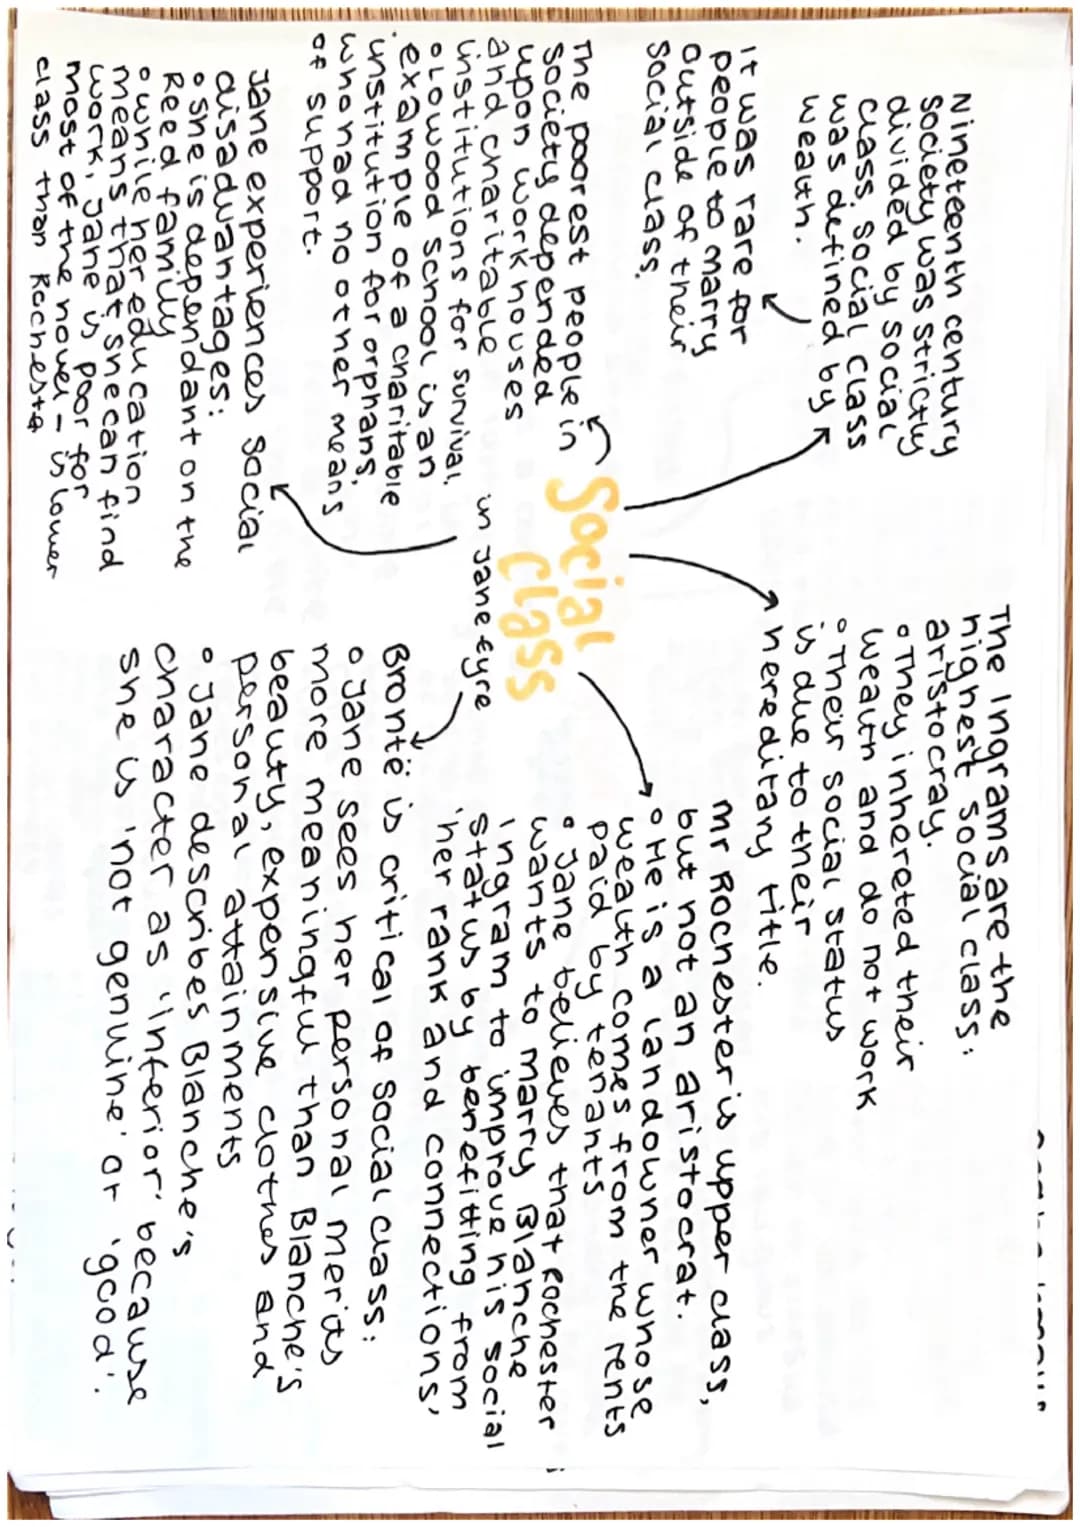 Social
Class
in Jane Eyre
Nineteenth century
society was strictly
divided by social
class. Social class
was defined by
wealth.
It was rare for
people to marry
outside of their
social class.
The poorest people in
society depended
upon workhouses
and charitable
institutions for survival.
• Lowood School is an
example of a charitable
institution for orphans
who had no other means
of support.
Jane experiences social
disadvantages:
• she is dependant on the
Reed family
• while her education
means that she can find
work, Jane is poor for
most of the novel - is lower
class than Rocheste
The Ingrams are the
highest social class:
aristocray.
• They inhereted their
wealth and do not work
• Their social status
is due to their
hereditary title.
Mr Rochester is upper class,
but not an aristocrat.
• He is a landowner whose
wealth comes from the rents
paid by tenants
• Jane believes that Rochester
wants to marry Blanche
Ingram to improve his social
status by benefitting from
'her rank and connections'
Brontë is critical of social class:
• Jane sees her personal merits
more meaningful than Blanche's
beauty, expensive clothes and
personal attainments
• Jane describes Blanche's
character as 'inferior' because
she is 'not genuine' or 'good'.